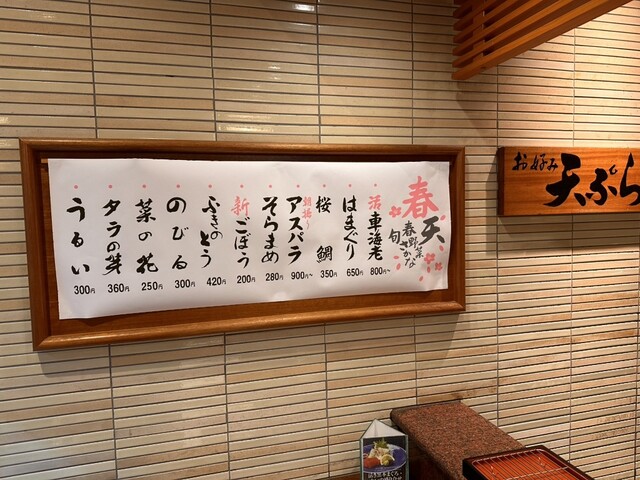 春天
旬 春野菜 さかな
活車海老 800円~
はまぐり 650円
桜鯛 350円
アスパラ 900円~
そらまめ 280円
新ごぼう 200円
ふきのとう 420円
のびる 300円
菜の花 250円
タラの芽 360円
うるい 300円
お好み 天ぷら